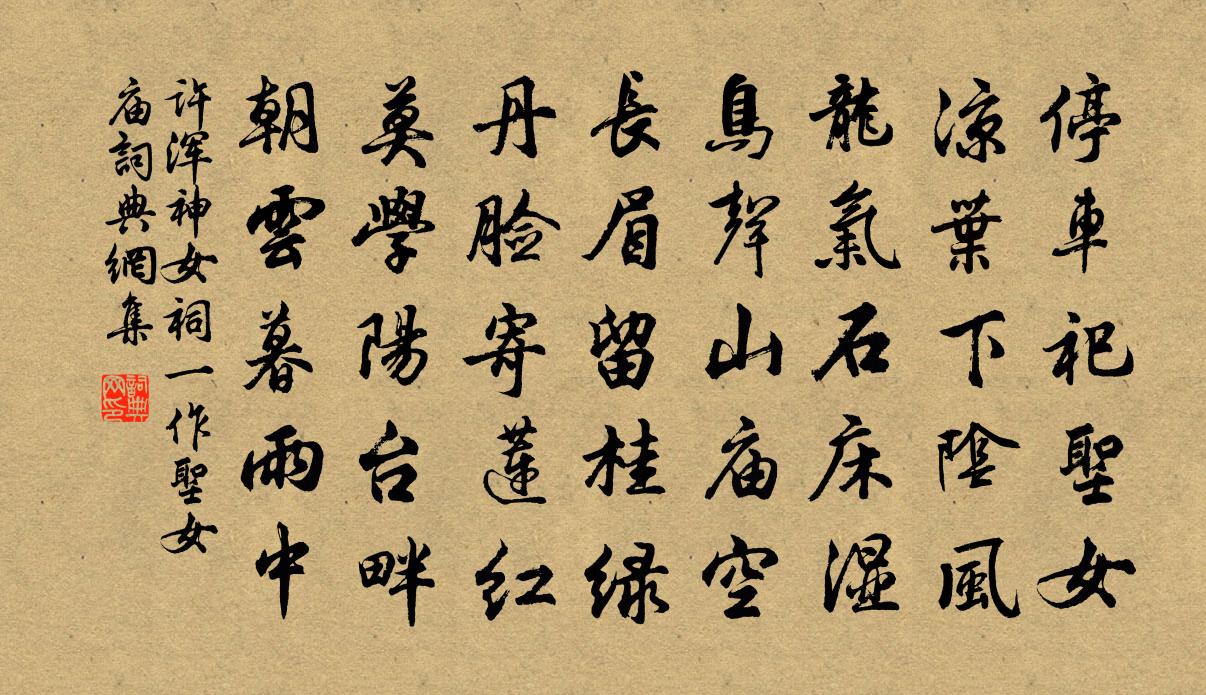 停車祀聖女
涼葉下陰風
龍氣石床濕
鳥聲山庙空
長眉留桂綠
丹脸寄蓮紅
莫學陽台畔
朝雲暮雨中
许浑神女祠一作聖女
庙詞典網集
詞典网印